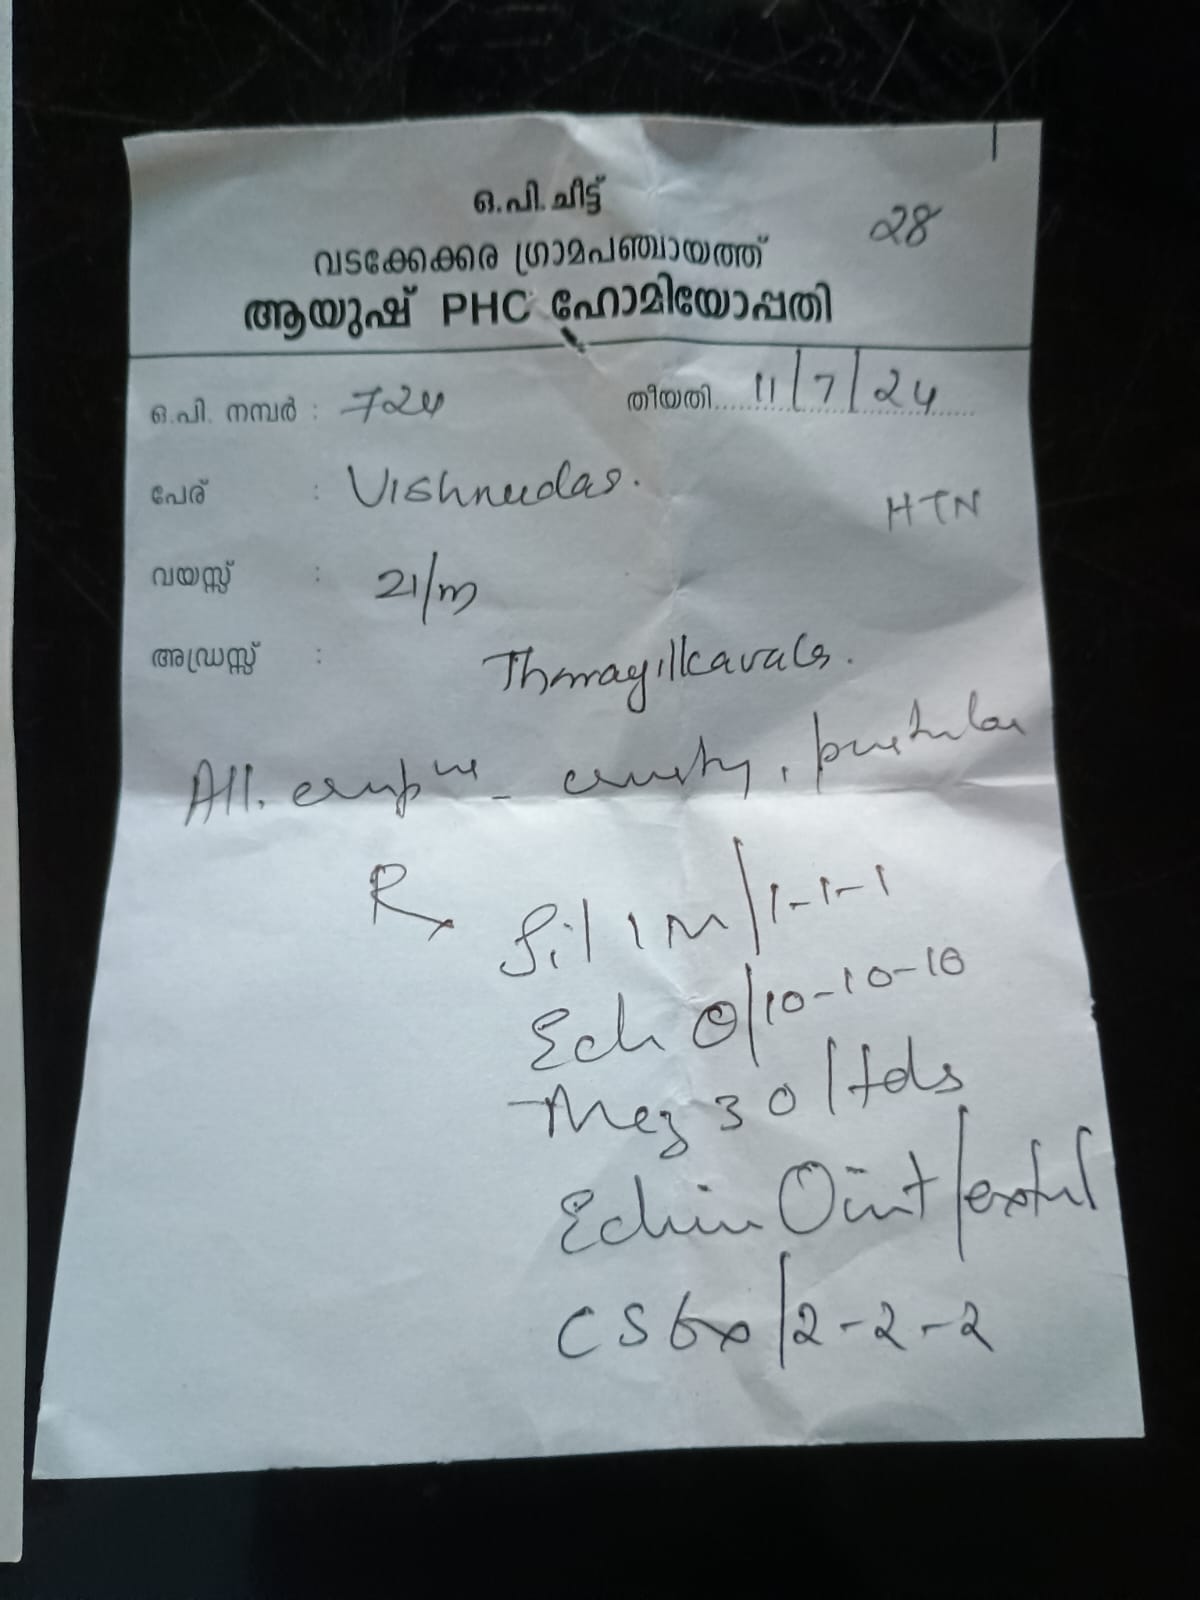 ഒ.പി. ചീട്ട്
28
വടക്കേക്കര ഗ്രാമപഞ്ചായത്ത്
ആയുഷ് PHC ഹോമിയോപ്പതി
ഒ.പി. നമ്പർ : 724 തീയതി 11/7/24
പേര് : Vishnudas.
HTN
വയസ്സ് : 21/m
അഡ്രസ്സ് :
All. - crusty, pustular
Rx Sil 1M/1-1-1
Ech Q/10-10-10
Mez 30/tds
Echin Oint/extnl
CS 6x/2-2-2